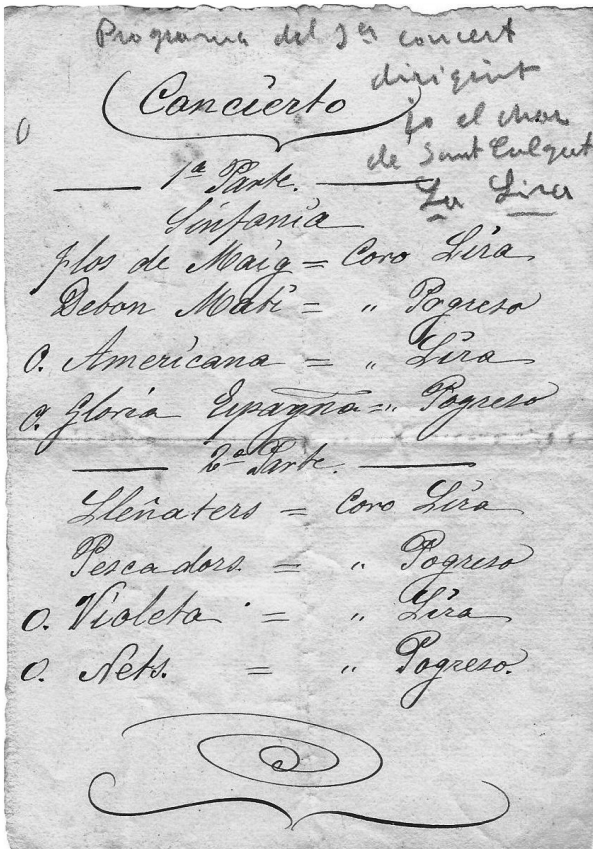 Programa del 1er concert
dirigint
jo el chor
de Sant Culgat
La Lira
Concierto
1ª Parte.
Sinfonia
Flos de Maig = Coro Lira
Debon Mati = " Pogreso
O. Americana = " Lira
O. Gloria Espagña = " Pogreso
2ª Parte.
Lleñaters = Coro Lira
Pescadors. = " Pogreso
O. Violeta = " Lira
O. Nets. = " Pogreso.